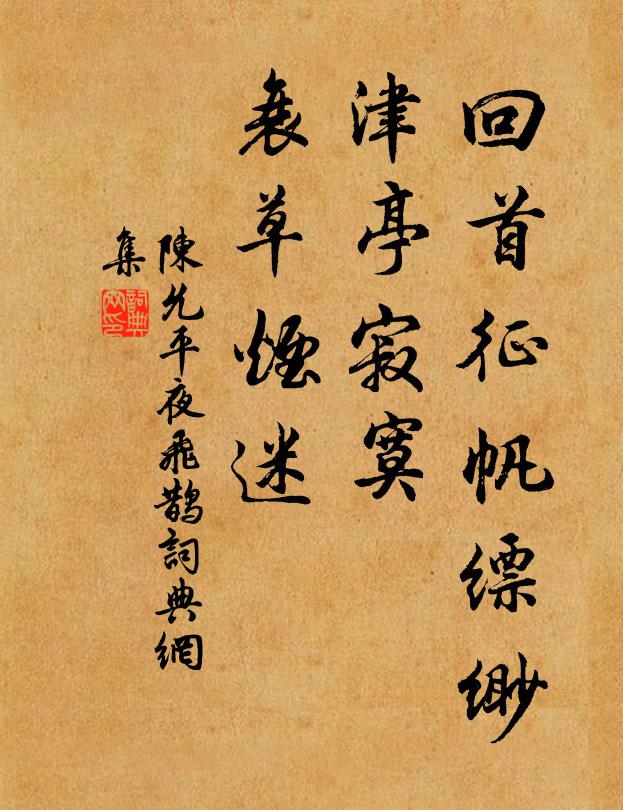 回首征帆缥缈
津亭寂寞
衰草煙迷
陳允平夜飛鵲詞典網
集
詞典
网印